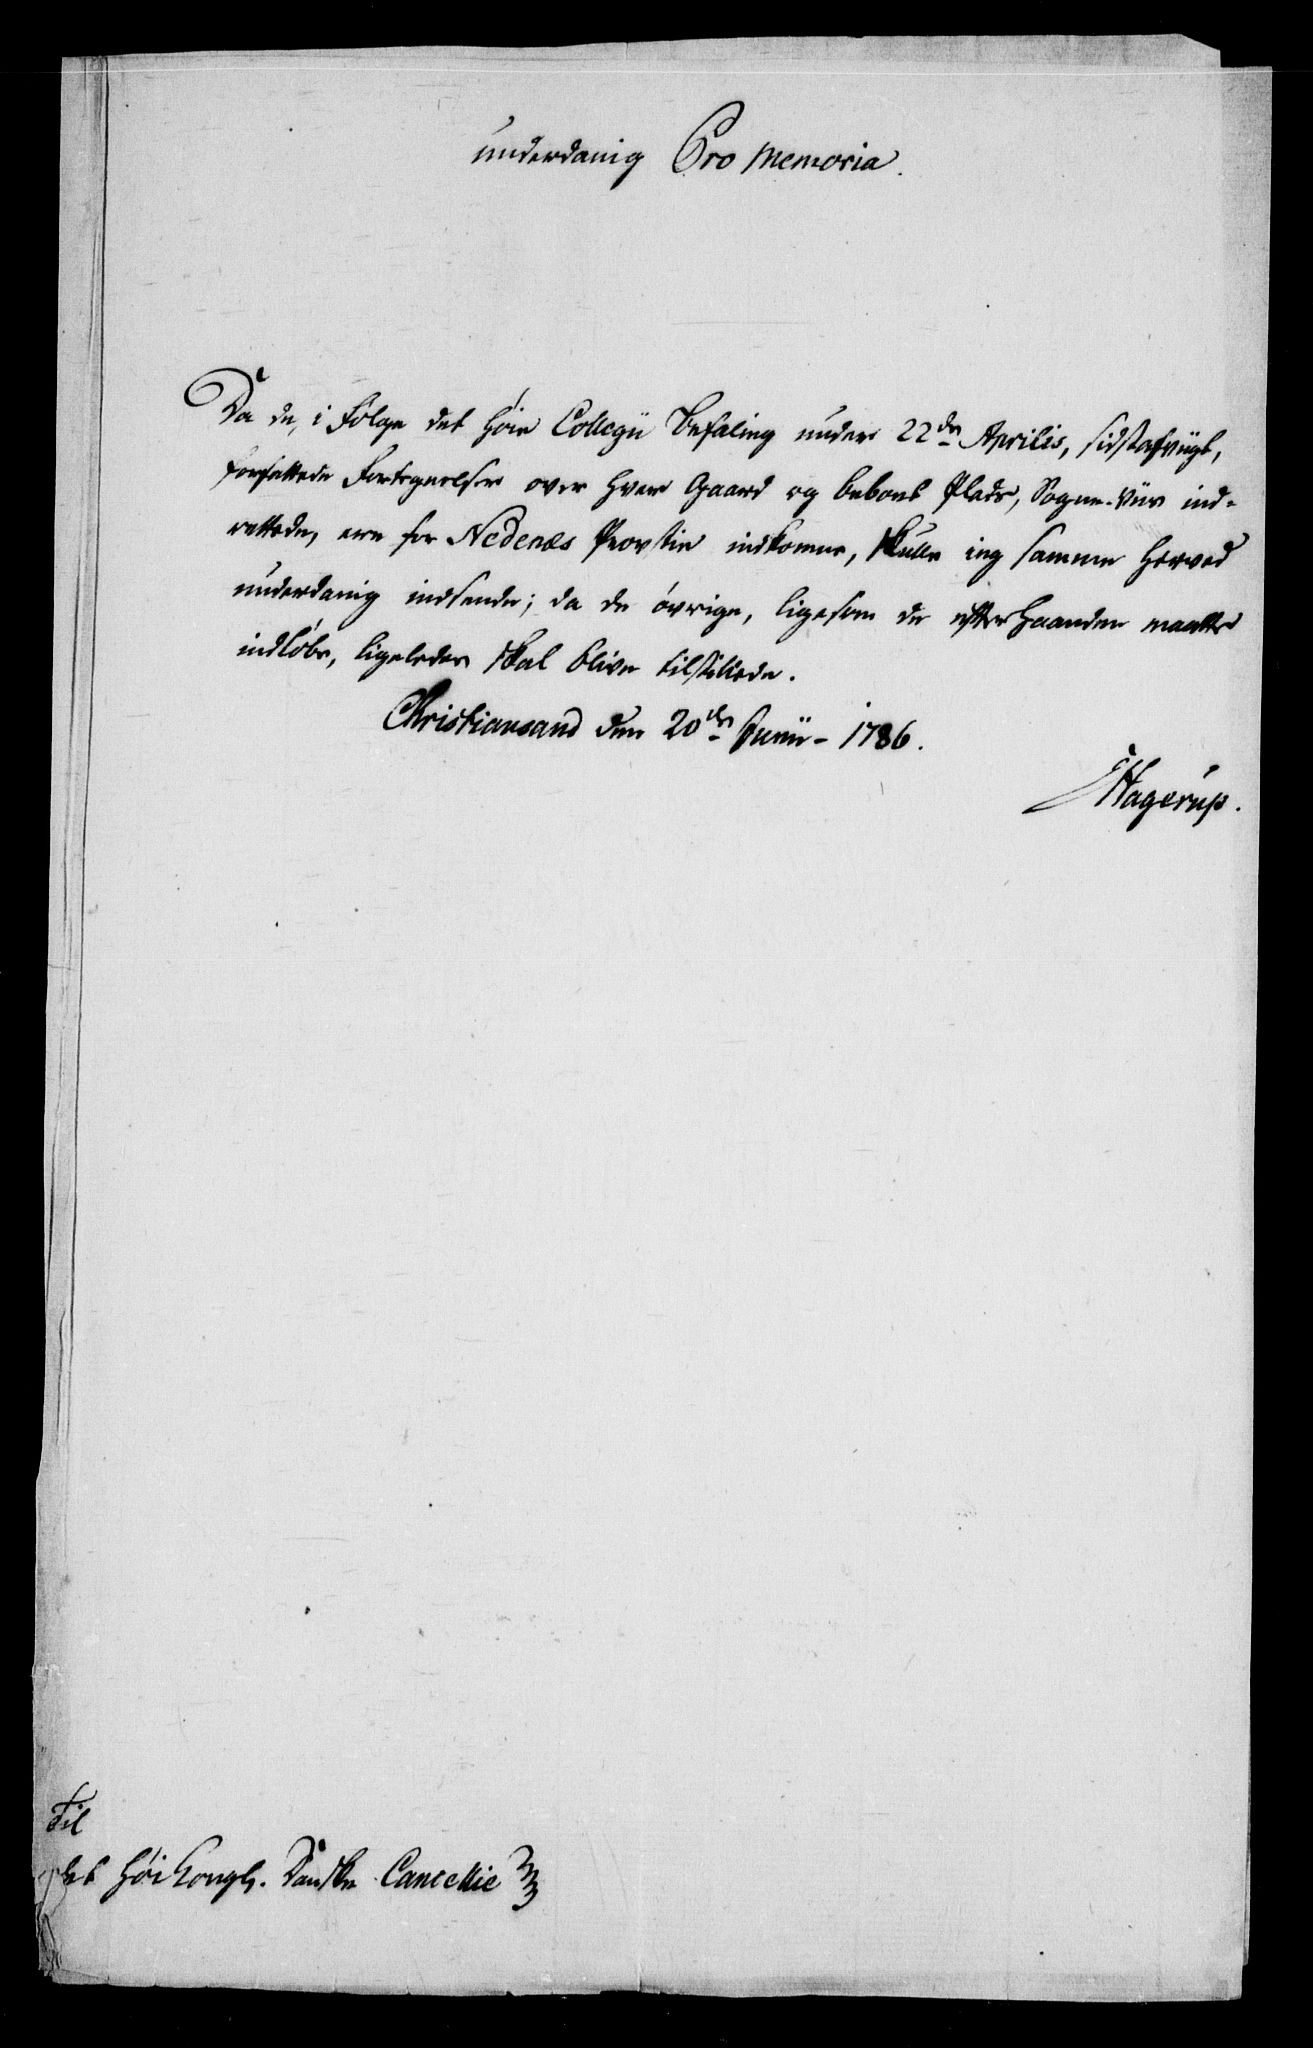 underdanig Pro Memoria.
Da de, i Følge det høie Collegii Befaling under 22de Aprilis, sidstafvigt,
forfattede Fortegnelser over hver Gaard og beboet Plads, Sogne-viis ind-
rettede, ere for Nedenæs Provstie indkomne, skulle ieg samme herved
underdanig indsende; da de øvrige, ligesom de efterhaanden maatte
indløbe, ligeledes skal blive tilstillede.
Christiansand den 20de Junii 1786.
Hagerup.
Til
det høi Kongl. Danske Cancellie